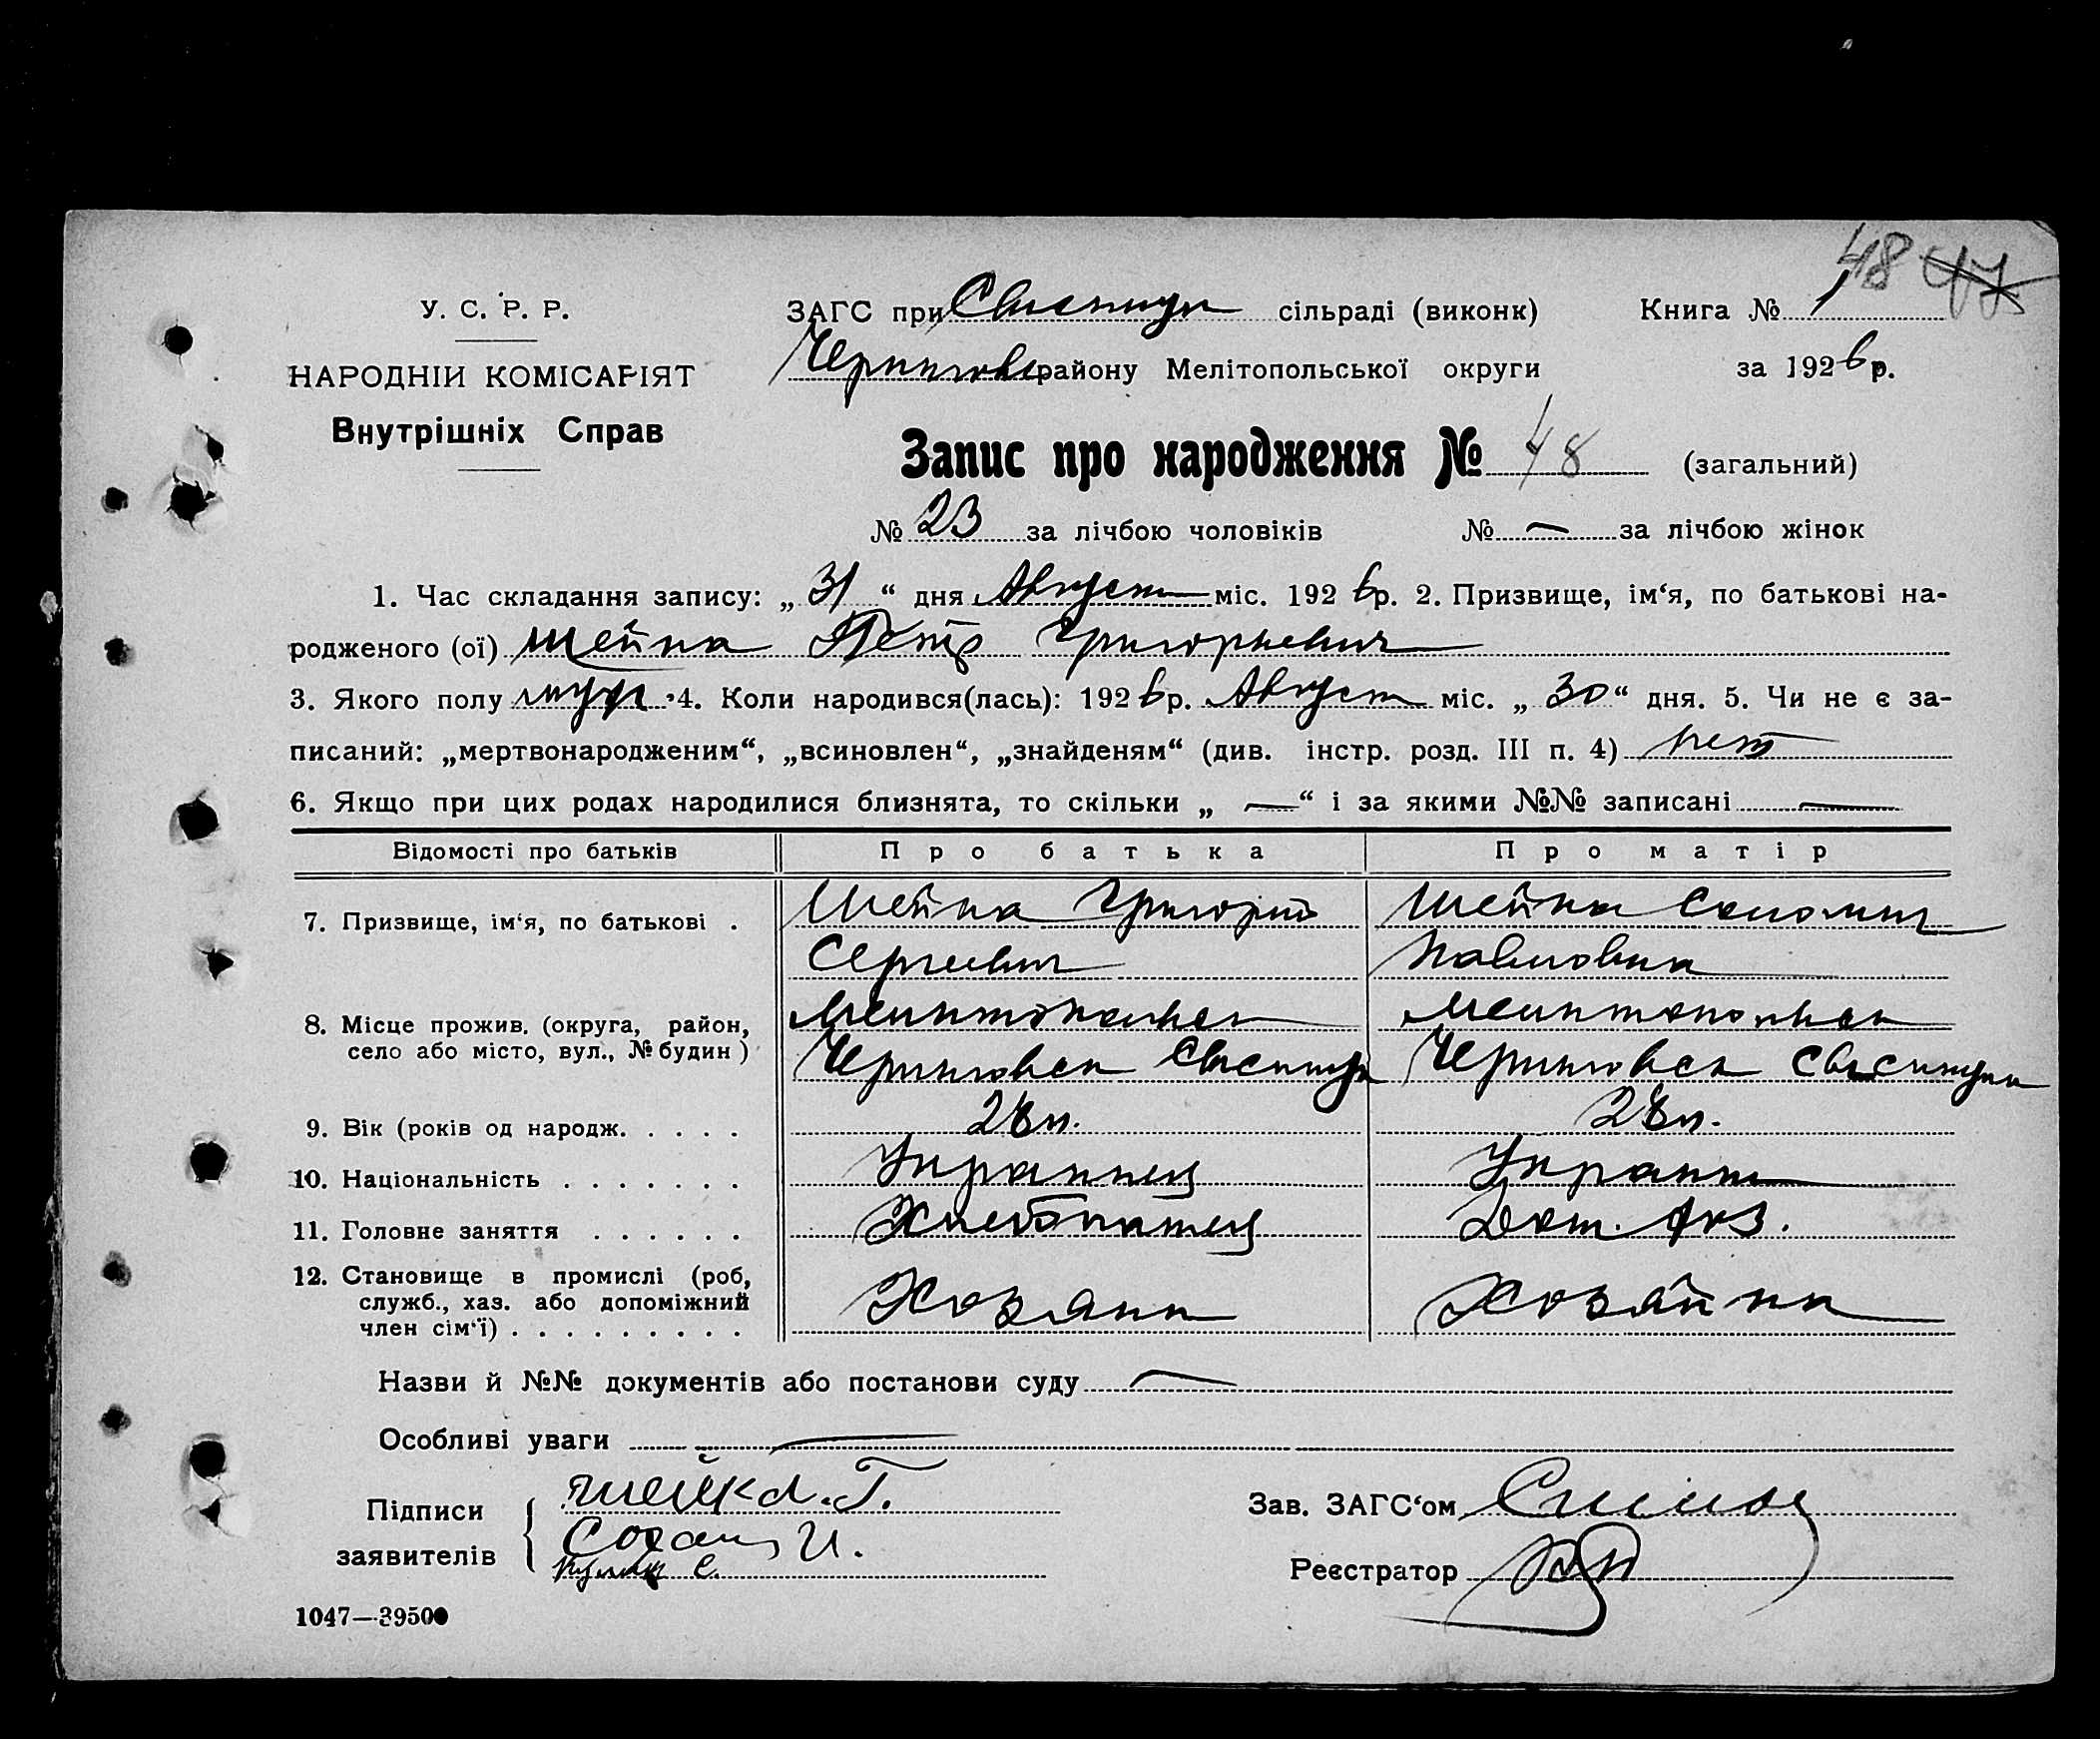 48 47
У. С. Р. Р.
НАРОДНІЙ КОМІСАРІЯТ
Внутрішніх Справ
ЗАГС при сільраді (виконк)
Книга № 1
району Мелітопольської округи
за 1926 р.
Запис про народження № 48 (загальний)
№ 23 за лічбою чоловіків № — за лічбою жінок
1. Час складання запису: „ 31 “ дня Август міс. 1926 р. 2. Призвище, ім‘я, по батькові на-
родженого (ої) Шейка Петр Григорьевич
3. Якого полу муж 4. Коли народився(лась): 1926 р. Август міс. „ 30 “ дня. 5. Чи не є за-
писаний: „мертвонародженим“, „всиновлен“, „знайденям“ (див. інстр. розд. III п. 4) нет
6. Якщо при цих родах народилися близнята, то скільки „ — “ і за якими №№ записані —
Відомості про батьків Про батька Про матір
7. Призвище, ім‘я, по батькові . Шейка Григорий Шейка
Сергеевич Павловна
8. Місце прожив. (округа, район,
село або місто, вул., № будин)
Мелитопольск Мелитопольск
Черниговск Черниговск
9. Вік (років од народж. . . . . 28 л. 28 л.
10. Національність . . . . . . . Украинец Украин
11. Головне заняття . . . . . . Хлебопашец Дом. хоз.
12. Становище в промислі (роб,
служб., хаз. або допоміжний
член сім‘ї) . . . . . . . . . Хозяин Хозяйка
Назви й №№ документів або постанови суду —
Особливі уваги —
Підписи
заявителів
Шейка. Г.
И.
С.
Зав. ЗАГС‘ом
Реєстратор
1047—39500